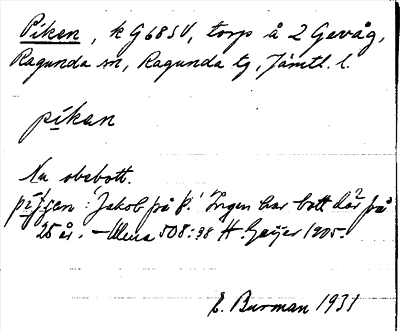 Pikan, k G68SV, torp å 2 Gevåg,
Ragunda sn, Ragunda tg, Jämtl. l.
pikan
Nu obebott.
"Jakob på P." Ingen har bott där på
25 år. – Ulena 508:38 H. Geijer 1905.
E. Burman 1931